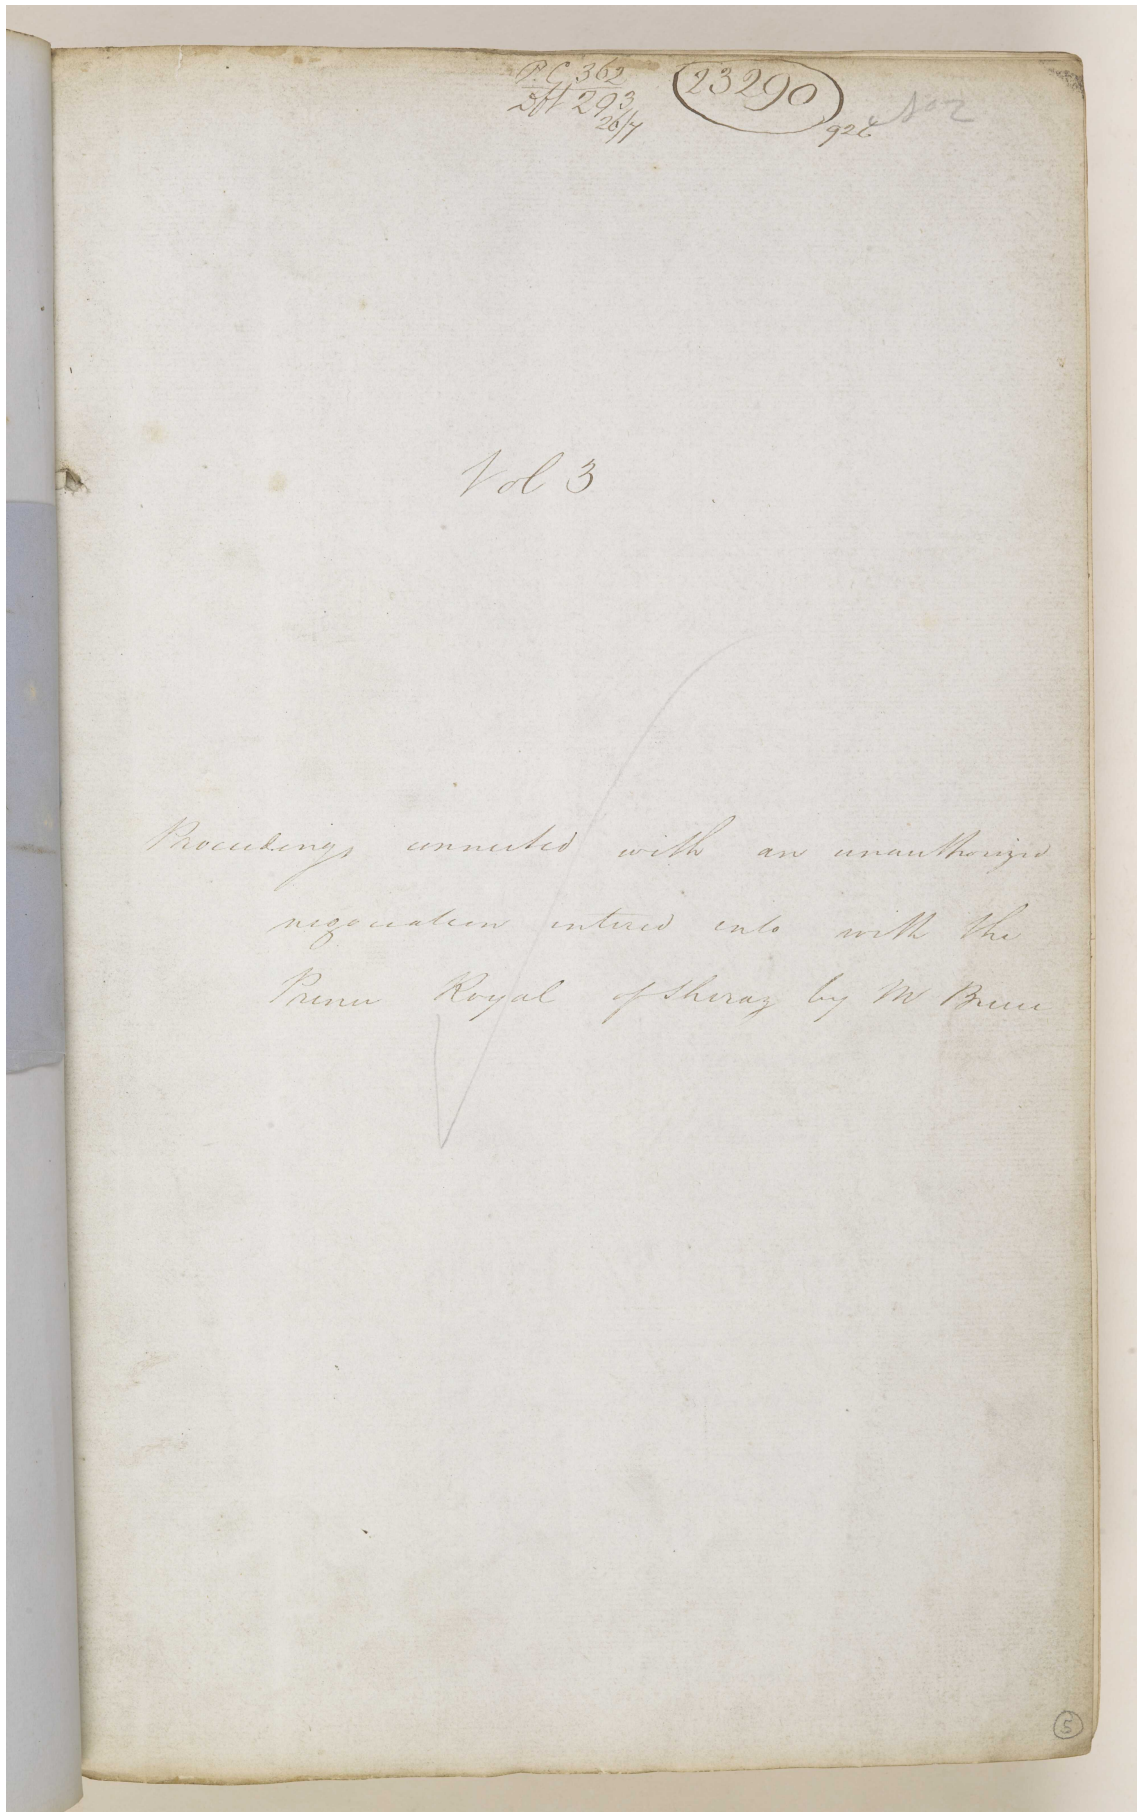 P.C 362
Dft 293
26/7
23290
926
Vol 3
Proceedings connected with an unauthorized
negociation entered into with the
Prince Royal of Sheraz by Mr Bruce
5